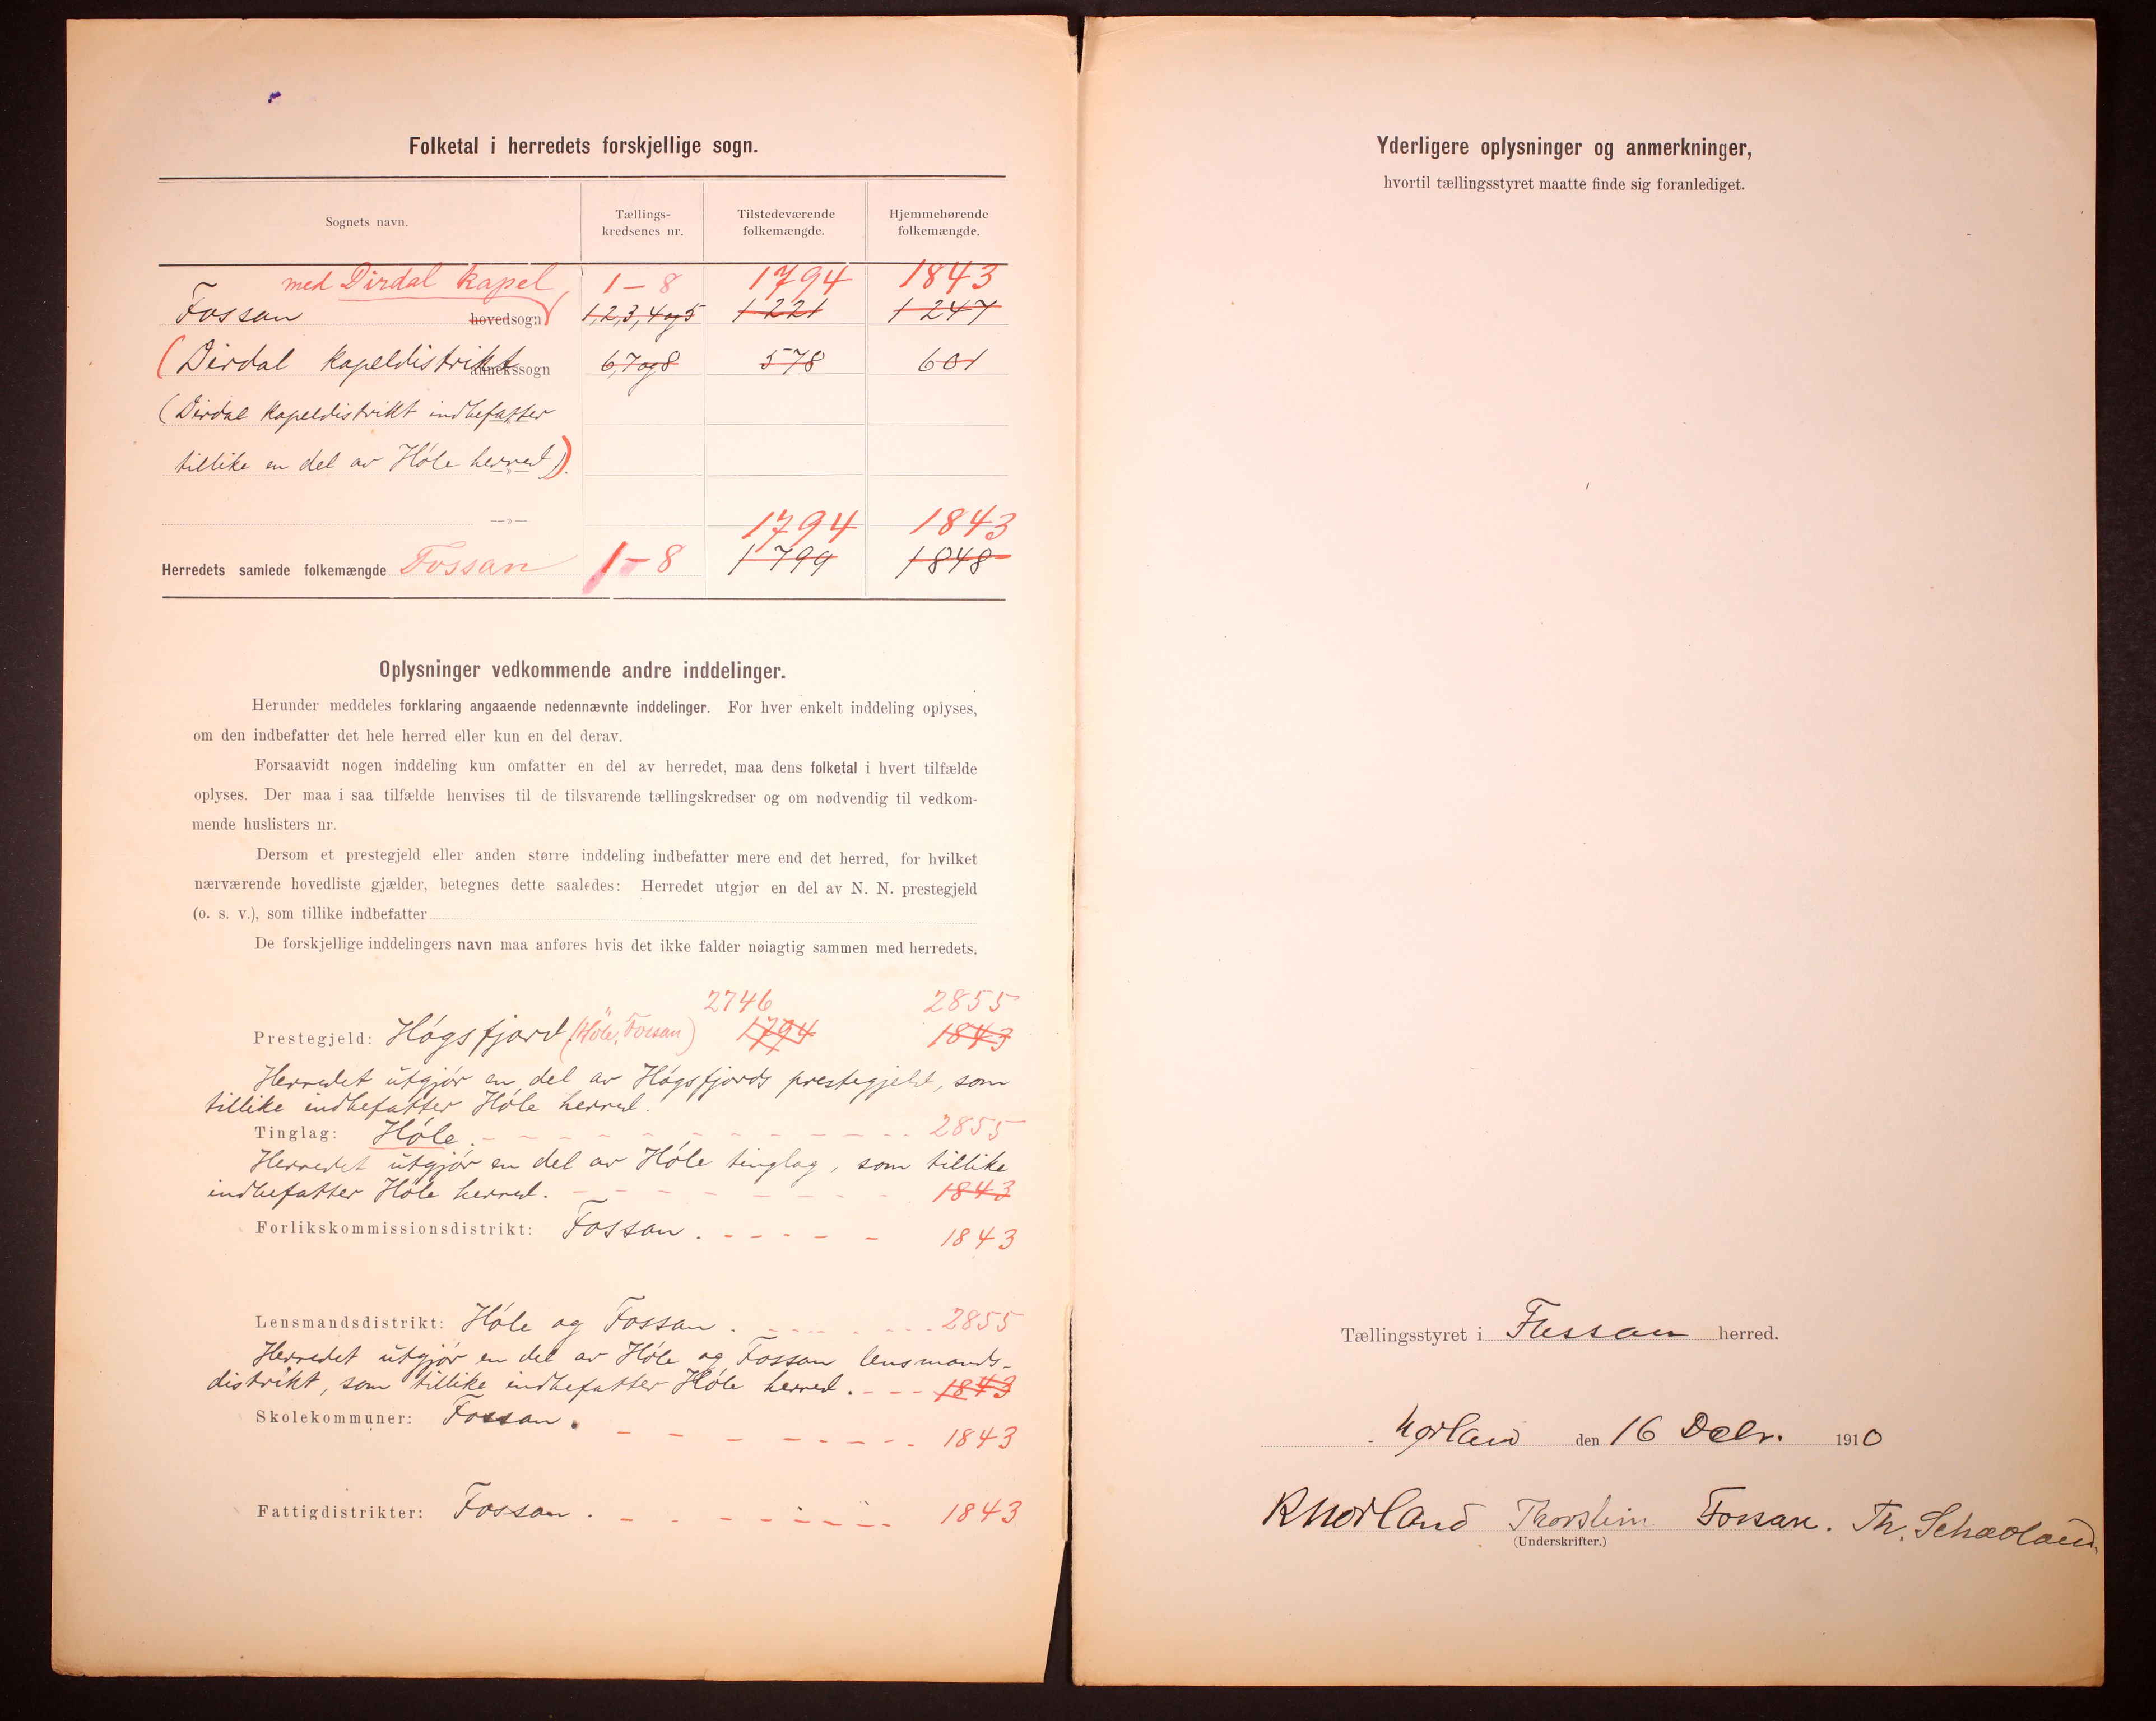 Folketal i herredets forskjellige sogn.
Sognets navn.
Tællings-
kredsenes nr.
Tilstedeværende
folkemængde.
Hjemmehørende
folkemængde.
med Dirdal kapel 1-8 1794 1843
Fossan hovedsogn 1,2,3,4og5 1221 1247
(Dirdal kapeldistrikt annekssogn 6,7og8 578 601
(Dirdal kapeldistrikt indbefatter
tillike en del av Høle herred).
—»—
1794 1843
Herredets samlede folkemængde Fossan 1-8 1799 1848
Oplysninger vedkommende andre inddelinger.
Herunder meddeles forklaring angaaende nedennævnte inddelinger. For hver enkelt inddeling oplyses,
om den indbefatter det hele herred eller kun en del derav.
Forsaavidt nogen inddeling kun omfatter en del av herredet, maa dens folketal i hvert tilfælde
oplyses. Der maa i saa tilfælde henvises til de tilsvarende tællingskredser og om nødvendig til vedkom-
mende huslisters nr.
Dersom et prestegjeld eller anden større inddeling indbefatter mere end det herred, for hvilket
nærværende hovedliste gjælder, betegnes dette saaledes: Herredet utgjør en del av N. N. prestegjeld
(o. s. v.), som tillike indbefatter
De forskjellige inddelingers navn maa anføres hvis det ikke falder nøiagtig sammen med herredets.
2746 2855
Prestegjeld: Høgsfjord (Høle, Fossan) 1794 1843
Herredet utgjør en del av Høgsfjords prestegjeld, som
tillike indbefatter Høle herred.
Tinglag: Høle. 2855
Herredet utgjør en del av Høle tinglag, som tillike
indbefatter Høle herred. 1843
Forlikskommissionsdistrikt: Fossan. 1843
Lensmandsdistrikt: Høle og Fossan. 2855
Herredet utgjør en del av Høle og Fossan lensmands-
distrikt, som tillike indbefatter Høle herred. 1843
Skolekommuner: Fossan. 1843
Fattigdistrikter: Fossan. 1843
Yderligere oplysninger og anmerkninger,
hvortil tællingsstyret maatte finde sig foranlediget.
Tællingsstyret i Fossan herred.
den 16 Decbr. 1910
Fossan. Th.
(Underskrifter.)